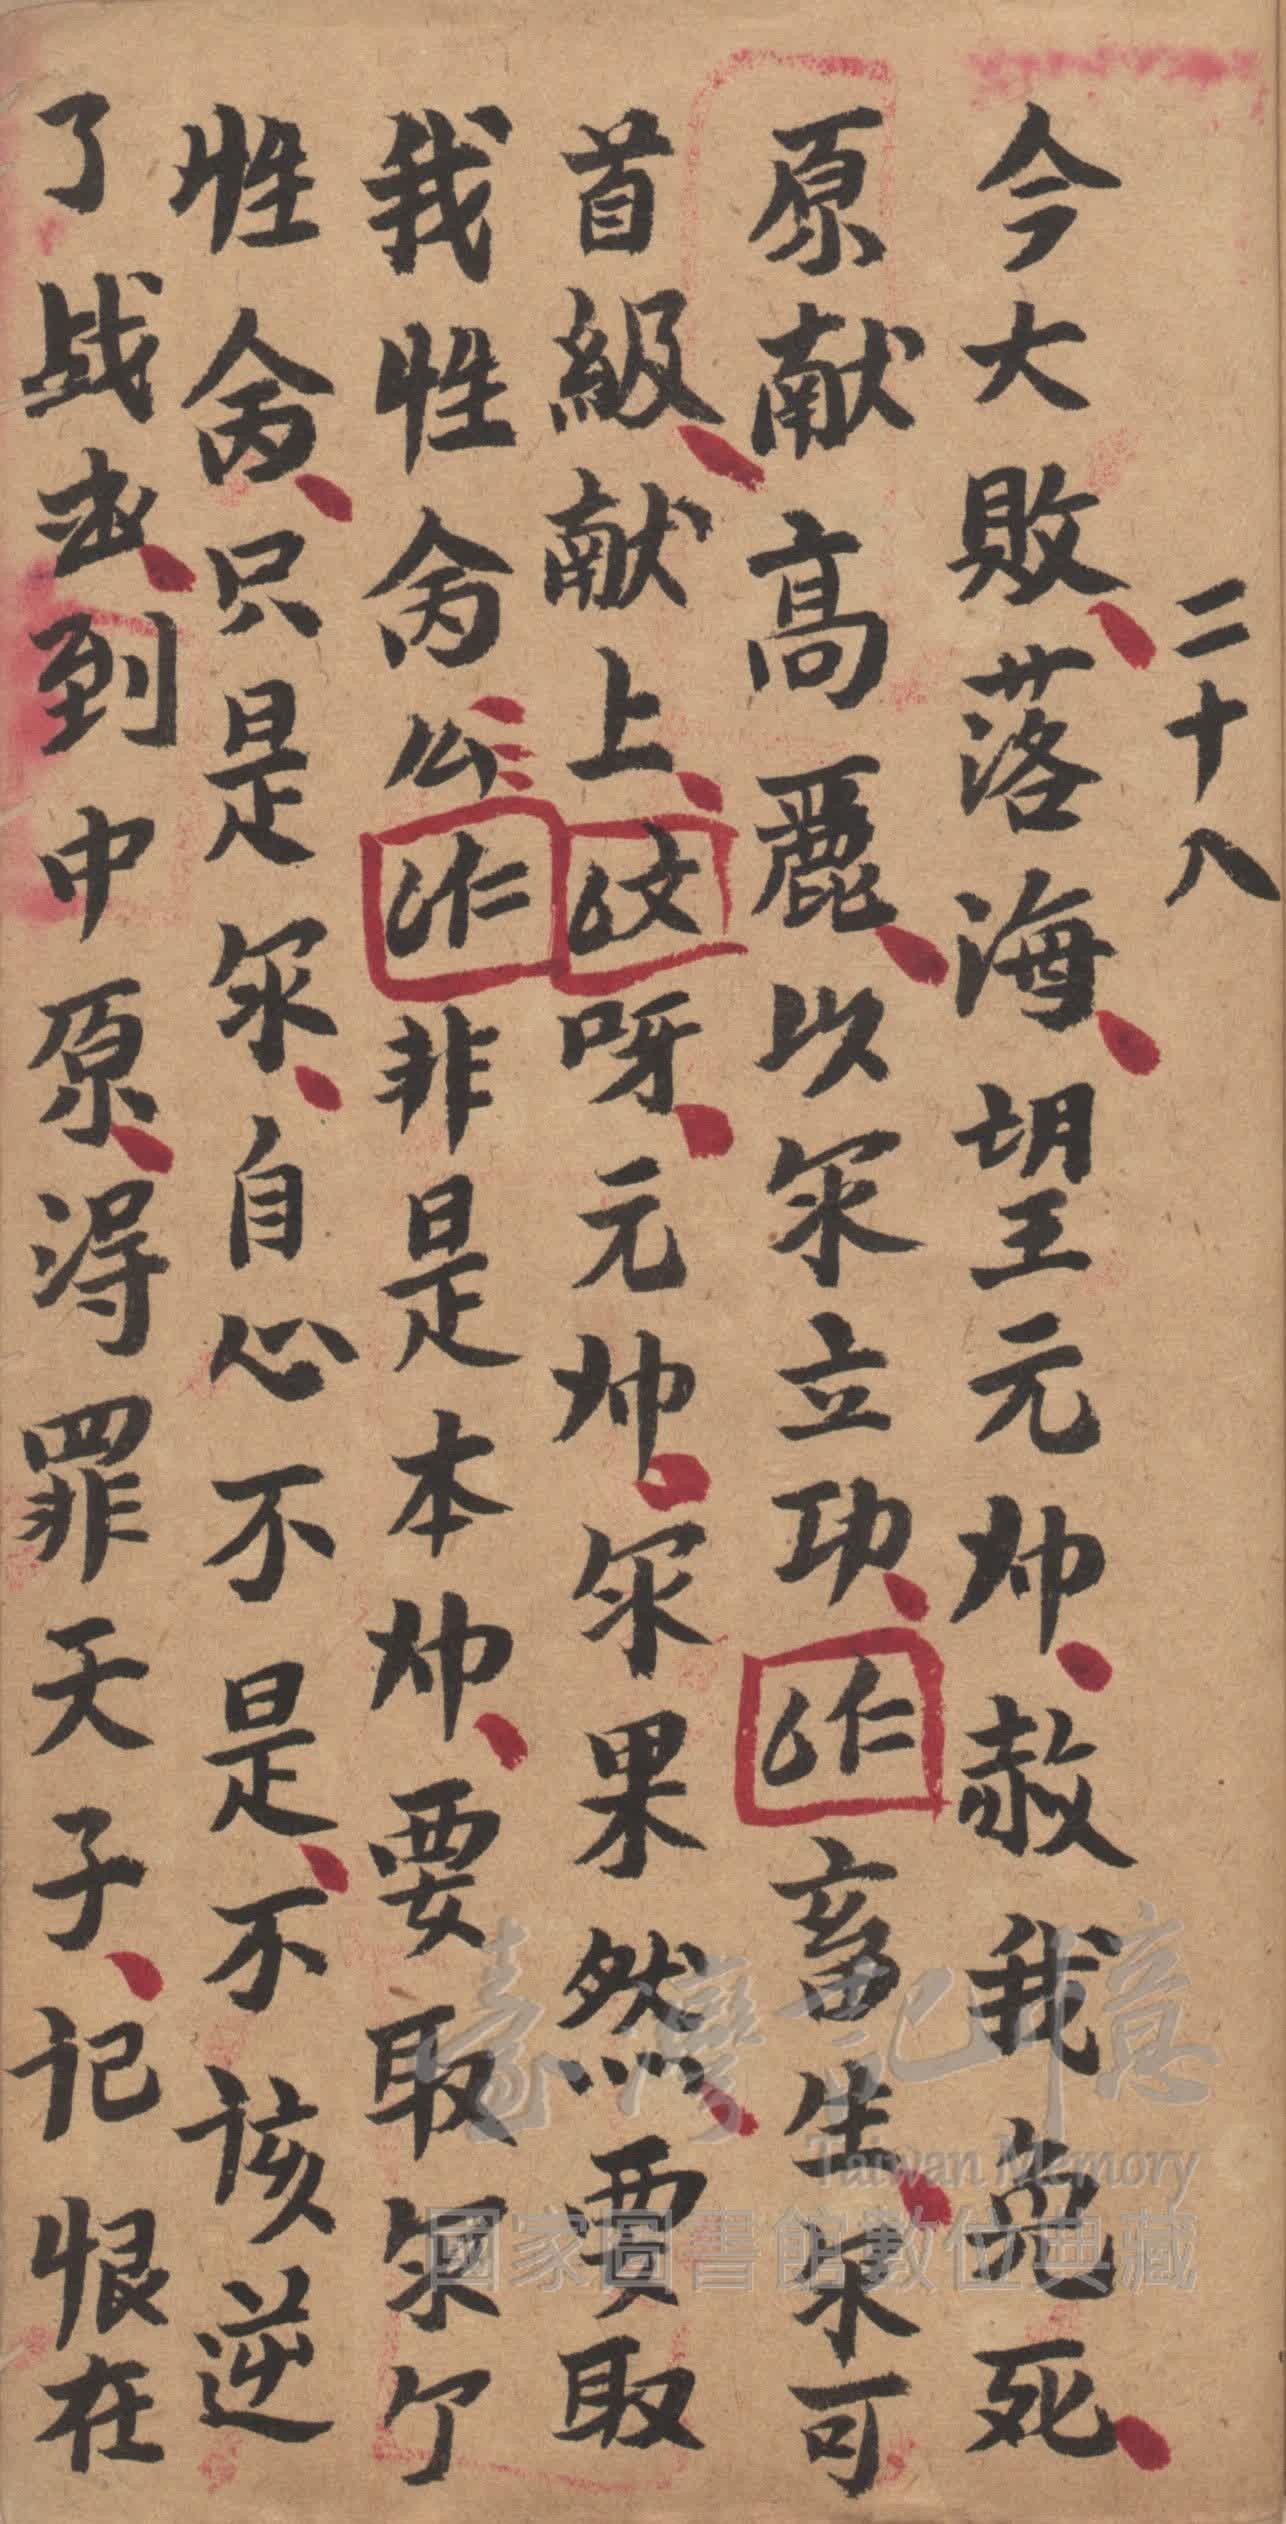 二十八
今大敗、落海、望元帥、赦我免死、
原献高麗、以尔立功、仁畜生、尔可
首級、献上、文呀、元帥、尔果然、要取
我性命么仁非是本帥、要取尔个
性命、只是尔、自心不是、不該逆
了战书、到中原、得罪天子、记恨在
臺灣記憶
Taiwan Memory
國家圖書館數位典藏